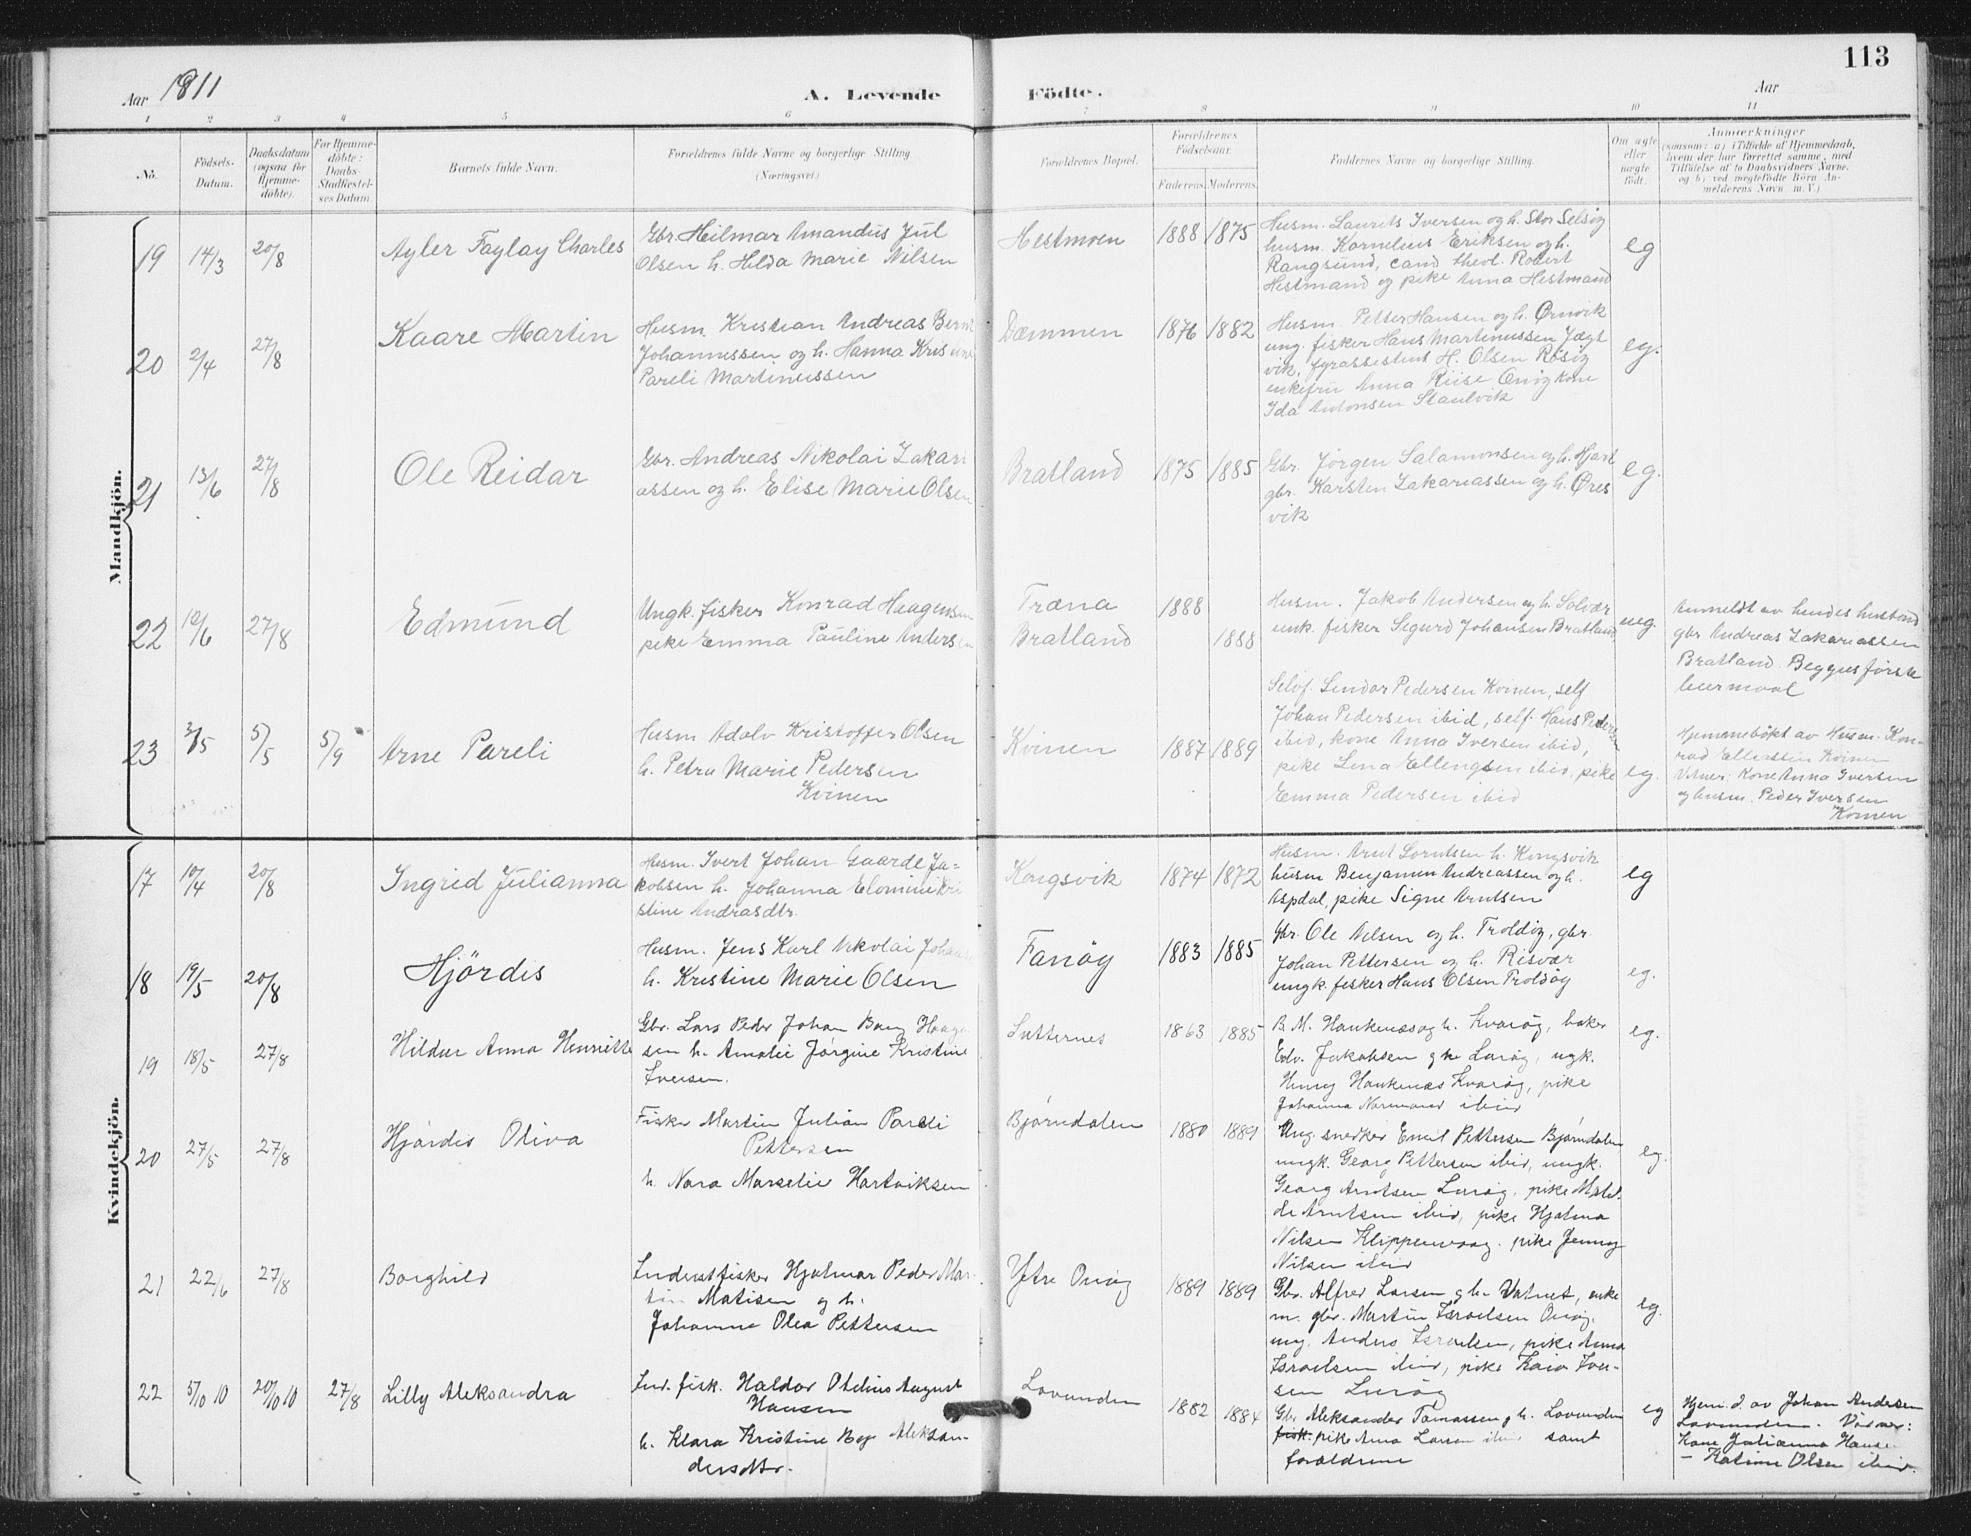 113
Aar 1911
A. Levende Födte.
Aar
1 2 3 4 5 6 7 8 9 10 11
No.
Födsels-Datum.
Daabsdatum (ogsaa for Hjemme-döbte).
For Hjemme-döbte: Daabs-Stadfæstel-ses Datum
Barnets fulde Navn.
Forældrenes fulde Navne og borgerlige Stilling (Næringsvei.)
Forældrenes Bopæl.
Forældrenes Födselsaar.
Faderens. Moderens.
Faddernes Navne og borgerlige Stilling.
Om ægte eller uægte födt.
Anmærkninger
(saasom: a) i Tilfælde af Hjemmedaab,
hvem der har forrettet samme, med
Tilföielse af to Daabsvidners Navne.
og b) ved uægtefödte Börn An-
melderens Navn m. V.)
Mandkjön.
19 14/3 20/8 Ayler Faylay Charles
Gbr. Hilmar Amandus Jul
Olsen h. Hilda Marie Nilsen
Hestmoen 1888 1875
Husm. Laurits Iversen og h. Stor Selsöy
husm. Kornelius Eriksen og h.
Rangsund, cand. theol. Robert
Hestmand og pike Anna Hestmand
eg
20 2/4 27/8 Kaare Martin
Husm. Kristian Andreas Bernt
Johannessen og h. Hanna Kristine
Pareli Martinussen
Dæmmen 1876 1882
Husm. Petter Hansen og h. Ørnvik
ung. fisker Hans Martinussen Jægt
vik, fyrassistent H. Olsen Rösöy
enkefru Anna Riise Onöy kone
Ida Antonsen Staulvik
eg.
21 13/6 27/8 Ole Reidar
Gbr. Andreas Nikolai Zakari
assen og h. Elise Marie Olsen
Bratland 1875 1885
Gbr. Jörgen Salamonsen og h. Hjart
gbr. Karsten Zakariassen og h. Øres
vik
eg.
22 12/6 27/8 Edmund
Ungk. fisker Konrad Haagensen
pike Emma Pauline Andersen
Træna 1888
Bratland 1888
Husm. Jakob Andersen og h. Solvær
unk. fisker Sigurd Johansen Bratland
ueg.
Anmeldt av hendes husbond
gbr Andreas Zakariassen
Bratland. Begges første
leiermaal
23 3/5 5/5 5/9 Arne Pareli
Husm Adolv Kristoffer Olsen
h. Petra Marie Pedersen
Kvinen
Kvinen 1887 1889
Selvf. Lindor Pedersen Kvinen, self
Johan Pedersen ibid, self. Hans Pedersen
ibid, kone Anna Iversen ibid,
pike Lina Ellengsen ibid, pike
Emma Pedersen ibid
eg.
Hjemmedöbt av Husm. Kon-
rad Elliassen Kvinen
Vitner: Kone Anna Iversen
og husm. Peder Iversen
Kvinen
Kvindekjön.
17 10/4 20/8 Ingrid Julianna
Husm. Ivert Johan Gaarde Ja-
kobsen h. Johanna Elomine Kri
stine Andrasdtr.
Kongsvik 1874 1872
Husm. Arnt Lorntsen h. Kongsvik
husm Benjamin Andreassen og h.
Aspdal, pike Signe Arntsen
eg
18 19/5 20/8 Hjördis
Husm. Jens Karl Nikolai Johansen
h. Kristine Marie Olsen
Fanöy 1883 1885
Gbr. Ole Nilsen og h. Troldöy, gbr.
Johan Pettersen og h. Risvær
ungk. fisker Hans Olsen Troldöy
eg.
19 18/5 27/8 Hildur Anna Henriette
Gbr. Lars Peder Johan Bang Haagen
sen h. Amalie Jörgine Kristine
Iversen.
Sutternes 1863 1885
B. M. Hankenæs og h. Kvaröy, baker
Edv. Jakobsen g h. Luröy, ugk.
Henry Hankenæs Kvaröy, pike
Johanna Normann ibid
eg.
20 27/5 27/8 Hjördis Oliva
Fisker Martin Julian Pareli
Pettersen
h. Nora Marselie Hartviksen
Bjørndalen 1880 1889
Ung. snedker Emil Pettersen Bjørndalen
ungk. Georg Pettersen ibid, ungk.
Georg Arntsen Luröy, pike Matil-
de Arntsen ibid, pike Hjalma
Nilsen Klippenvaag. pike Jenny
Nilsen ibid
eg.
21 22/6 27/8 Borghild
Inderstfisker Hjalmar Peder Mar-
tin Matisen og h.
Johanna Olea Pettersen
Ytre Onöy 1889 1889
Gbr. Alfred Larsen g h. Vatnet, enke
m. gbr. Martin Israelsen Onöy,
ung. Anders Israelsen, pike Anna
Israelsen ibid, pike Kaia Iver-
sen Luröy
eg.
22 5/10 10 20/10 10 27/8 Lilly Aleksandra
Ind. fisk. Haldor Otelius August
Hansen
h. Klara Kristine Bep Aleksan-
dersdtr.
Lovunden 1882 1884
Gbr Aleksander Tomassen g h. Lovunden
fisk. pike Anna Larsen ibid samt
forældrene
eg
Hjem. d. av Johan Andersen
Lovunden. Vidner:
Kone Julianna Hansen
– Katrine Olsen ibid.